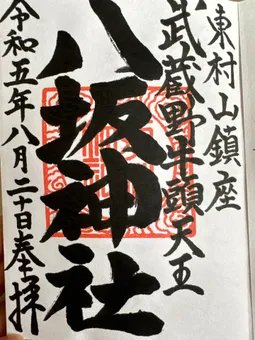 東村山鎮座
武蔵野牛頭天王
八坂神社
令和五年八月二十日奉拝